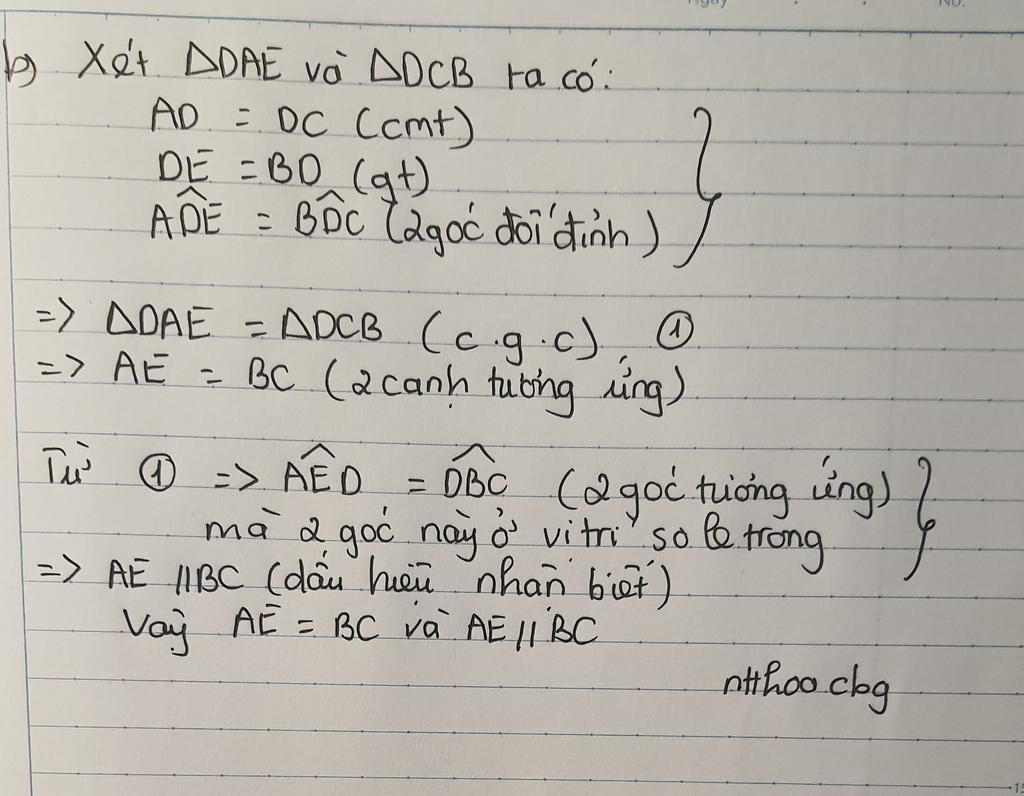 Ngày No.
b) Xét ΔDAE và ΔDCB ta có:
AD = DC (cmt)
DE = BD (gt)
AD̂E = BD̂C (2 góc đối đỉnh)
=> ΔDAE = ΔDCB (c.g.c) ①
=> AE = BC (2 cạnh tương ứng)
Từ ① => AÊD = DB̂C (2 góc tương ứng)
mà 2 góc này ở vị trí so le trong
=> AE // BC (dấu hiệu nhận biết)
Vậy AE = BC và AE // BC
ntthoo.cbg